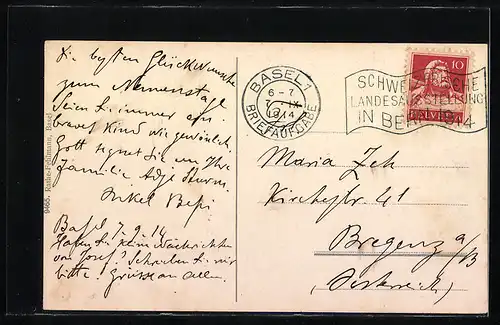 Die besten Glückwünsche
zum Namenstag
Seien Sie immer ein
braves Kind wie gewöhnlich.
Gott segnet Sie und Ihre
Familie
Onkel Bepi
Basel 7.9.14
Haben Sie keine Nachrichten
von Josef? Schreiben Sie mir
bitte! Grüsse an allen.
9465. Rathe-Fehlmann, Basel
BASEL 1
6-7
7 IX
1914
BRIEFAUFGABE
SCHWEIZERISCHE
LANDESAUSSTELLUNG
IN BERN 1914
10
HELVETIA
Maria Zeh
Kirchstr. 41
Bregenz a/B
(Österreich)